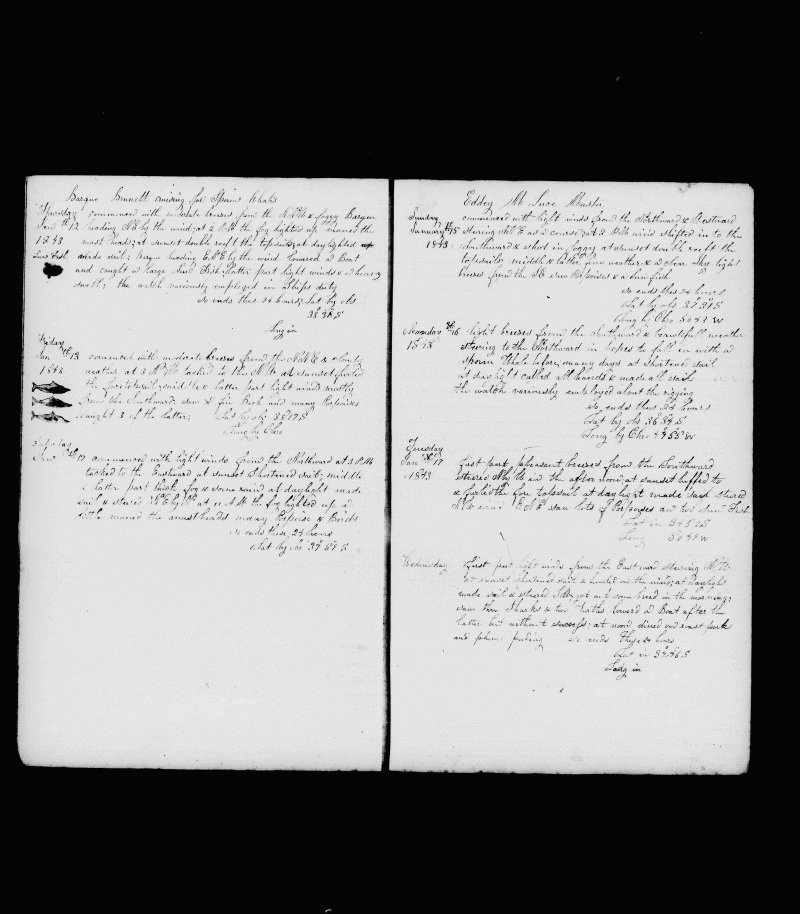 Barque Brunett cruising for Sperm Whales
Thursday commenced with moderate breeses from the N.N.W & foggy Barque
Jan th 12 heading N.E by the wind, at 4 P.M the fog lighted up maned the
1843 mast heads, at sunset double reeft the topsails, at daylighted
Sun Fish made sail, Barque heading E.N.E by the wind lowered a Boat
and caught a large Sun Fish, latter part light winds & a heavy
swell, the watch variously employed in Ships duty
So ends this 24 hours, Lat by obs
Long in
Friday
Jan th 13 comenced with moderate breeses from the N.N.E & cloudy
1843 weather at 3 P.M tacked to the N.W at sunset furled
the foretopsail, middle & latter part light winds mostly
from the Southward saw a fin Back and many Porpoises
caught 3 of the latter, Lat by obs 38 17 S
Long by Chro
Saturday
Jan th commenced with light winds from the Northward at 3 P.M
tacked to the Eastward at sunset shortened sail, middle
& latter part thick fog & some rain at daylight made
sail & steard N.E by N at 11 A.M the fog lighted up a
little maned the mastheads many Porpoise & Birds
So ends these 24 hours
Lat by obs 37 S
Eddey M Luce Master
Sunday commenced with light winds from the Northward & Westward
January th 15 Stearing N.E a course, at 2 P.M wind shifted in to the
1843 Southward & shut in foggy at sunset double reeft the
topsails, middle & latter fine weather & a clear Sky light
breeses from the SE saw Porpoises & a Sun fish
So ends this 24 hours
Lat by obs 37 31 S
Long by Chro 50 42 W
Monday th 16 light breeses from the Southward & beautifull weather
1843 stearing to the Northward in hopes to fall in with a
Sperm Whale before many days at shortened sail
at day light called all hands & made all sail
the watch variously employed about the riging
So ends these 24 hours
Lat by obs 36 S
Long by Chro 49 55 W
Tuesday
Jan th 17 first part pleasant breeses from the Southward
1843 steared N by W in the afternoon at sunset luffed to
& furled the fore topsail at daylight made sail steard
saw lots of Porpoises and two Sun Fish
Lat in 34 52 S
Long 50 W
Wednesday first part light winds from the Eastward stearing
at sunset shortened sail & hauled on the wind, at Daylight
made sail & steared got out some bread in the morning,
saw three Sharks & two Turtles lowerd a Boat after the
latter but without success, at noon dined on roast pork
and plum puding So ends these 24 hours
Lat in S
Long in